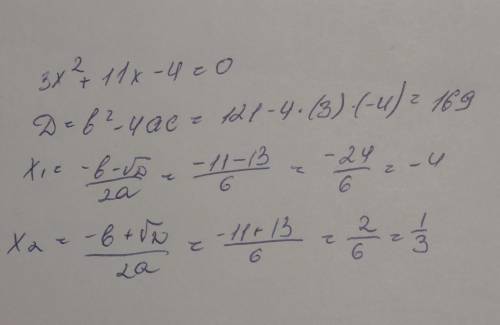 3x² + 11x - 4 = 0
D = b² - 4ac = 121 - 4 · (3) · (-4) = 169
x₁ = (-b - √D)/(2a) = (-11 - 13)/6 = (-24)/6 = -4
x₂ = (-b + √D)/(2a) = (-11 + 13)/6 = 2/6 = 1/3